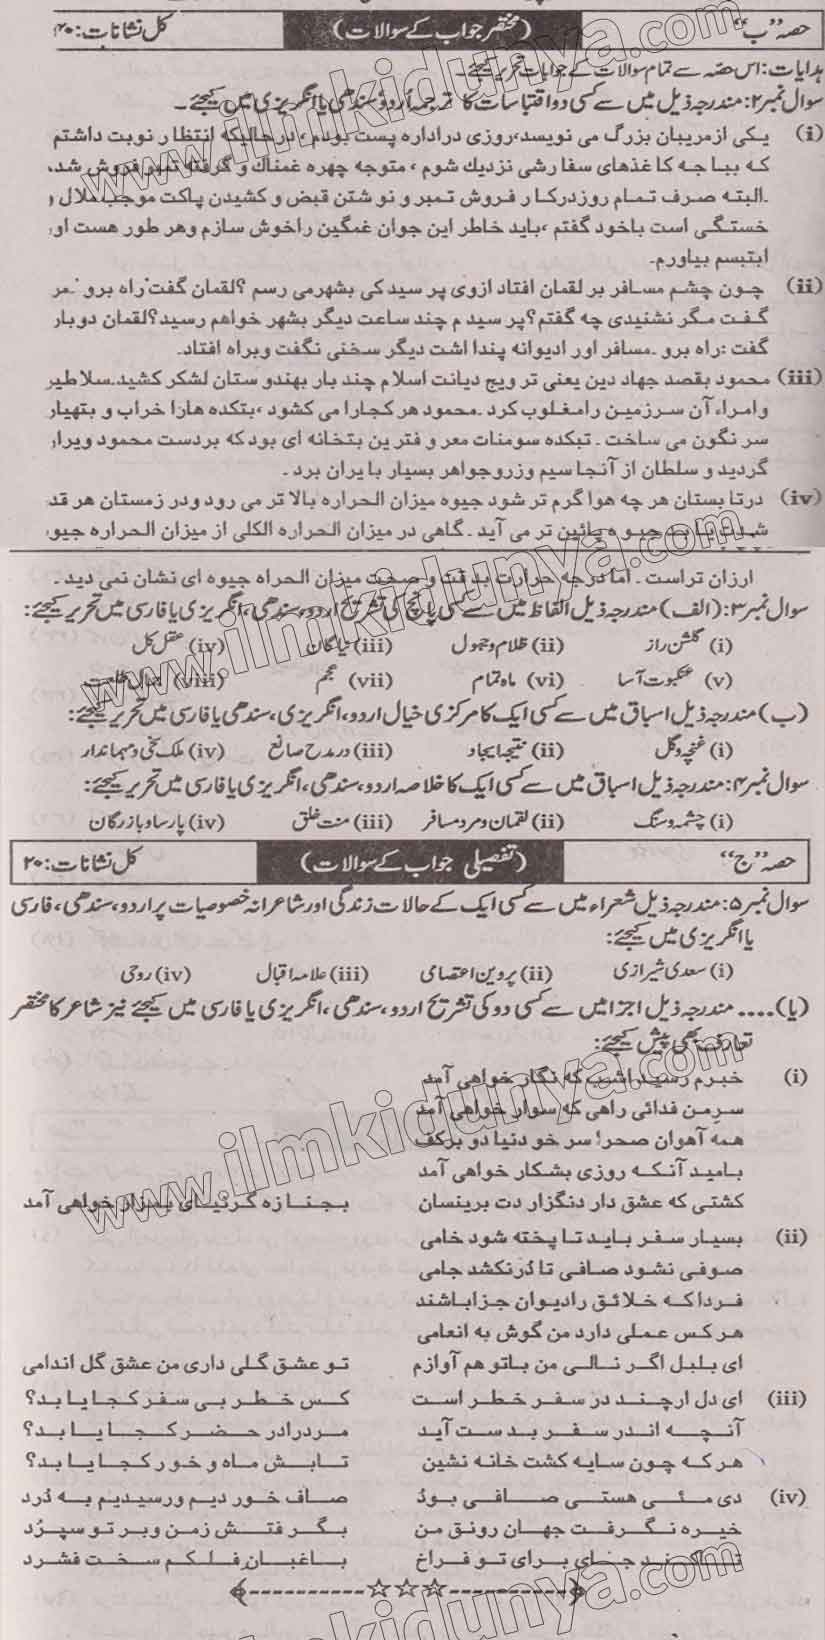 حصہ ”ب“ (مختصر جواب کے سوالات) کل نشانات: ۴۰
ہدایات: اس حصّہ سے تمام سوالات کے جوابات تحریر کیجئے۔
سوال نمبر ۲: مندرجہ ذیل میں سے کسی دو اقتباسات کا ترجمہ اُردو، سندھی یا انگریزی میں کیجئے۔
(i) یکی از مربیان بزرگ می نویسد، روزی در اداره پست بودم، درحالیکه انتظار نوبت داشتم
که بباجه کاغذهای سفارشی نزدیك شوم، متوجه چهره غمناك و گرفته تمبر فروش شد
.البته صرف تمام روز درکار فروش تمبر و نوشتن قبض و کشیدن پاکت موجب ملال و
خستگی است باخود گفتم، باید خاطر این جوان غمگین راخوش سازم وهر طور هست اور
ابتبسم بیاورم.
(ii) چون چشم مسافر بر لقمان افتاد ازوی پر سید کی بشهرمی رسم ؟لقمان گفت راه برو .مر
گفت مگر نشنیدی چه گفتم؟پر سید م چند ساعت دیگر بشهر خواهم رسید؟لقمان دوبار
گفت :راه برو .مسافر اور ادیوانه پندا اشت دیگر سخنی نگفت وبراه افتاد.
(iii) محمود بقصد جهاد دین یعنی تر ویج دیانت اسلام چند بار بهندو ستان لشکر کشید.سلاطیر
وامراء آن سرزمین رامغلوب کرد .محمود هر کجارا می کشود ،بتکده هارا خراب و بتهیار
سر نگون می ساخت . تبکده سومنات معر و فترین بتخانه ای بود که بردست محمود ویرار
گردید و سلطان از آنجا سیم وزروجواهر بسیار با یران برد .
(iv) درتا بستان هر چه هوا گرم تر شود جیوه میزان الحراره بالا تر می رود ودر زمستان هر قد
شدت یا بد جیوه پائین تر می آید . گاهی در میزان الحراره الکلی از میزان الحراره جیو
ارزان تراست . اما درجه حرارت بدقت و صحت میزان الحراه جیوه ای نشان نمی دید .
سوال نمبر ۳: (الف) مندرجہ ذیل الفاظ میں سے کسی پانچ کی تشریح اردو، سندھی، انگریزی یا فارسی میں تحریر کیجئے:
(i) گلشن راز (ii) ظلام و جہول (iii) نیاگان (iv) عقل کل
(v) عنکبوت آسا (vi) ماہ تمام (vii) عجم (viii)
(ب) مندرجہ ذیل اسباق میں سے کسی ایک کا مرکزی خیال اردو، انگریزی، سندھی یا فارسی میں تحریر کیجئے:
(i) غنچہ و گل (ii) نتیجہ ایجاد (iii) در مدح صانع (iv) ملک یخی و مہماندار
سوال نمبر ۴: مندرجہ ذیل اسباق میں سے کسی ایک کا خلاصہ اردو، سندھی، انگریزی یا فارسی میں تحریر کیجئے:
(i) چشمہ و سنگ (ii) لقمان و مرد مسافر (iii) منت خلق (iv) پارسا و بازرگان
حصہ ”ج“ (تفصیلی جواب کے سوالات) کل نشانات: ۲۰
سوال نمبر ۵: مندرجہ ذیل شعراء میں سے کسی ایک کے حالات زندگی اور شاعرانہ خصوصیات پر اردو، سندھی، فارسی
یا انگریزی میں کیجئے:
(i) سعدی شیرازی (ii) پروین اعتصامی (iii) علامہ اقبال (iv) روحی
(یا).... مندرجہ ذیل اجزا میں سے کسی دو کی تشریح اردو، سندھی، انگریزی یا فارسی میں کیجئے نیز شاعر کا مختصر
تعارف بھی پیش کیجئے:
(i) خبرم رسید اشب که نگار خواهی آمد
سرمن فدائی راهی که سوار خواهی آمد
همه آهوان صحرا سر خو دنیا دو برکف
بامید آنکه روزی بشکار خواهی آمد
کشتی که عشق دار دنگزار دت برینسان بجنازه گرنیای بمزار خواهی آمد
(ii) بسیار سفر باید تا پخته شود خامی
صوفی نشود صافی تا دُرنکشد جامی
فردا که خلائق رادیوان جزاباشند
هر کس عملی دارد من گوش به انعامی
ای بلبل اگر نالی من باتو هم آوازم تو عشق گلی داری من عشق گل اندامی
(iii) ای دل ارچند در سفر خطر است کس خطر بی سفر کجا یا بد؟
آنچه اندر سفر بد ست آید مردرادر حضر کجا یا بد؟
هر که چون سایه کشت خانه نشین تابش ماه و خور کجا یا بد؟
(iv) دی مئی هستی صافی بودُ صاف خور دیم ورسیدیم به دُرد
خیره نگرفت جهان رونق من بگر فتش زمن وبر تو سپرُد
تا کند جای برای تو فراخ باغبان فلکم سخت فشرد
www.ilmkidunya.com
www.ilmkidunya.com
www.ilmkidunya.com
www.ilmkidunya.com